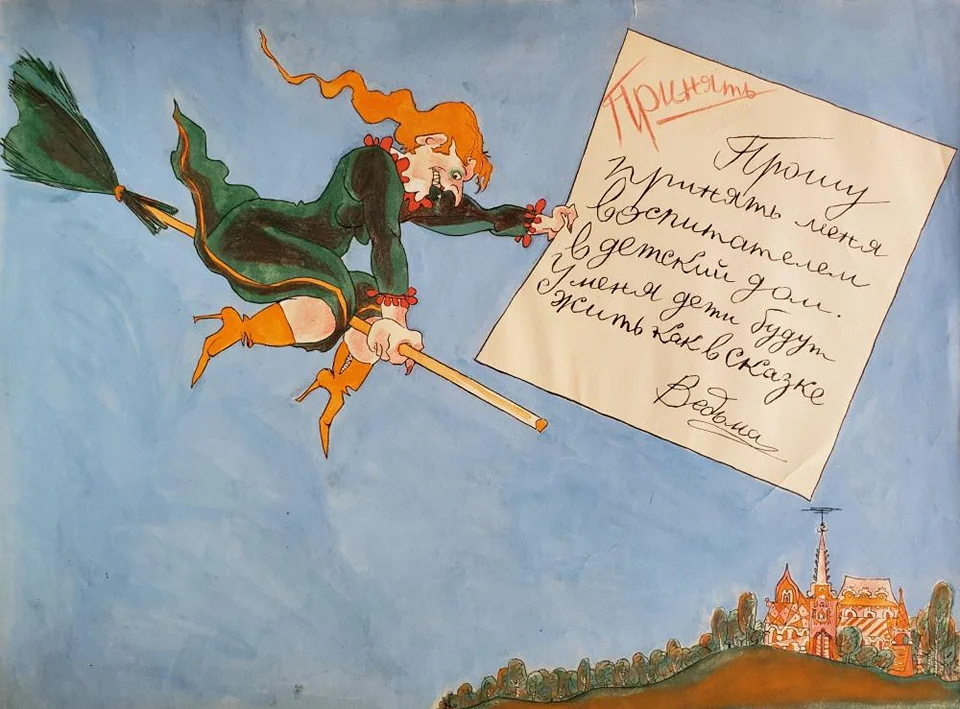 Принять
Прошу
принять меня
воспитателем
в детский дом.
У меня дети будут
жить как в сказке
Ведьма